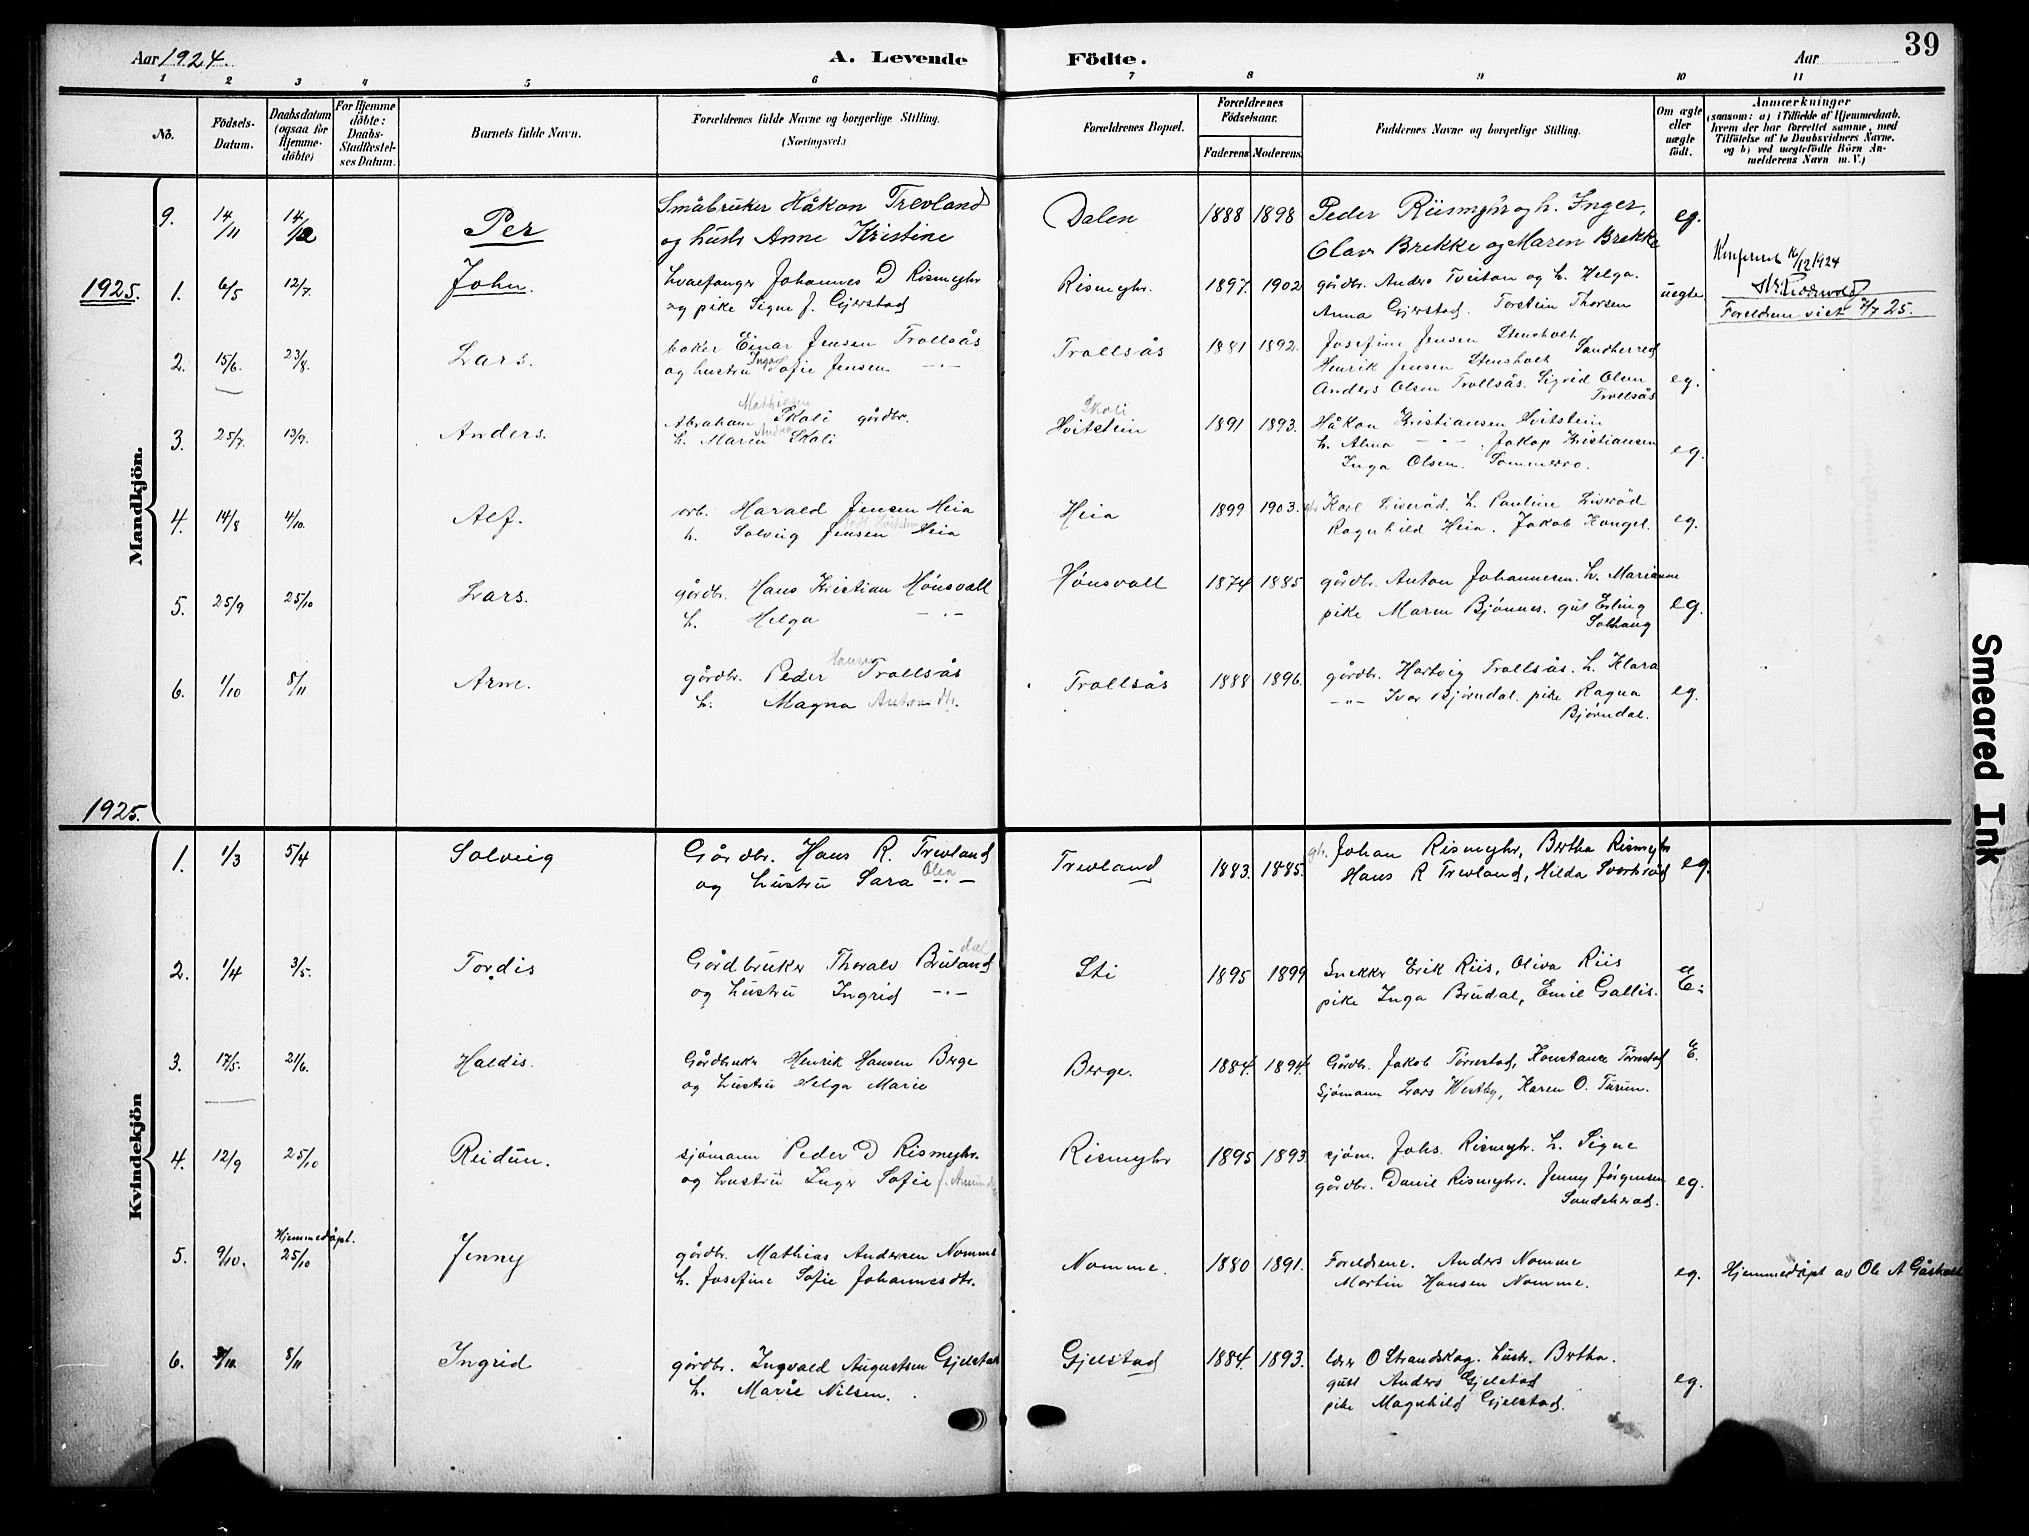 Aar 1924.
A. Levende Födte.
Aar
39
1 2 3 4 5 6 7 8 9 10 11
No.
Födsels-Datum.
Daabsdatum (ogsaa for Hjemme-döbte)
For Hjemme döbte: Daabs-Stadfæstel-ses Datum.
Barnets fulde Navn.
Forældrenes fulde Navne og borgerlige Stilling. (Næringsvei.)
Forældrenes Bopæl.
Forældrenes Födselsaar.
Faderens Moderens.
Faddernes Navne og borgerlige Stilling.
Om ægte eller uægte födt.
Anmærkninger
(saasom: a) i Tilfælde af Hjemmedaab.
hvem der har forrettet samme, med
Tilföielse af to Daabsvidners Navne.
og b) ved uegtefödte Börn An-
melderens Navn m.V.)
Mandkjön.
9. 14/11 14/12 Per
Småbruker Håkon Trevland
og hustr Anne Kristine
Dalen 1888 1898
Peder Riismyhr og h. Inger,
Olav Brekke og Maren Brekke
eg.
Konferert 16/12 1924
1925. 1. 6/5 12/7. John.
hvalfanger Johannes D Rismyhr
og pike Signe J. Gjerstad
Rismyhr. 1897. 1902
gårdbr. Anders Tveitan og h. Helga.
Anna Gjerstad. Torstein Thorsen
uegte
Foreldrene viet 7/7 25.
2. 15/6. 23/8. Lars.
baker Einar Jensen Trollsås
og hustru Inga Sofie Jensen -"-
Trollsås 1881 1892.
Josefine Jensen Stensholt
Henrik Jensen Stensholt Sandherred
Anders Olsen Trollsås. Sigrid Olsen
Trollsås
eg.
3. 25/7. 13/9. Anders.
Mathiesen
Abraham Skali gårdbr.
h. Maren Andrea Skali
Skali
Hvitstein 1891 1893.
Håkon Kristiansen Hvitstein
h. Alma -"- . Jakop Kristiansen
Inga Olsen. Sommerro.
eg.
4. 14/8 4/10. Alf.
arb. Harald Jensen Heia
h. Solveig Jensen Heia
Heia 1899 1903.
Karl Liveröd. h. Pauline Liveröd
Ragnhild Heia. Jakob Kongel.
eg.
5. 25/9 25/10 Lars.
gårdbr. Hans Kristian Hönsvall
h. Helga -"-
Hönsvall 1874 1885
gårdbr. Anton Johannesen. h. Marianne
pike Maren Bjönnes. gut Erling
Solhaug
eg.
6. 1/10 8/11 Arne.
gårdbr. Peder Hansen Trollsås
h. Magna Antonsdtr.
Trollsås 1888 1896.
gårdbr. Hartvig Trollsås. h. Klara
-"- Ivar Björndal. pike Ragna
Björndal.
eg.
1925.
Kvindekjön
1. 1/3 5/4 Solveig
Gårdbr. Hans R. Trevland
og hustru Sara Olea -"-
Trevland 1883. 1885.
Johan Rismyhr, Bertha Rismyhr
Hans R Trevland, Hilda Svartsröd
eg.
2. 1/4 3/5. Tordis
Gårdbruker Thoralv Bruland
dal
og hustru Ingrid -"-
Sti 1895 1899
Snekker Erik Riis, Oliva Riis
pike Inga Brudal, Emil Gallis.
E.
3. 17/5. 21/6. Haldis.
Gårdbruker Henrik Hansen Berge
og hustru Helga Marie
Berge. 1884. 1894.
Gårdbr. Jakob Törrestad, Konstance Törrestad
Sjömann Lars Westby, Karen O. Turun.
E.
4. 12/9 25/10 Reidun.
sjömann Peder D Rismyhr.
og hustru Inger Sofie
Rismyhr 1895 1893
sjöm. Johs. Rismyhr. h. Signe
gårdbr. Daniel Rismyhr. Jenny Jörgensen
Sandeherad.
eg.
5. 9/10. Hjemmedöpt. 25/10 Jenny
gårdbr. Mathias Andersen Nomme
h. Josefine Sofie Johannesdtr.
Nomme. 1880 1891.
Foreldrene. Anders Nomme
Martin Hansen Nomme.
eg. Hjemmedöpt av Ole A Gåsholt
6. 8/11 Ingrid
gårdbr. Ingvald Augustsen Gjelstad
h. Marie Nilsen.
Gjelstad 1884. 1893.
O Strandskog. hustr. Bertha.
gutt Anders Gjelstad
pike Magnhild Gjelstad.
eg.
Smeared Ink